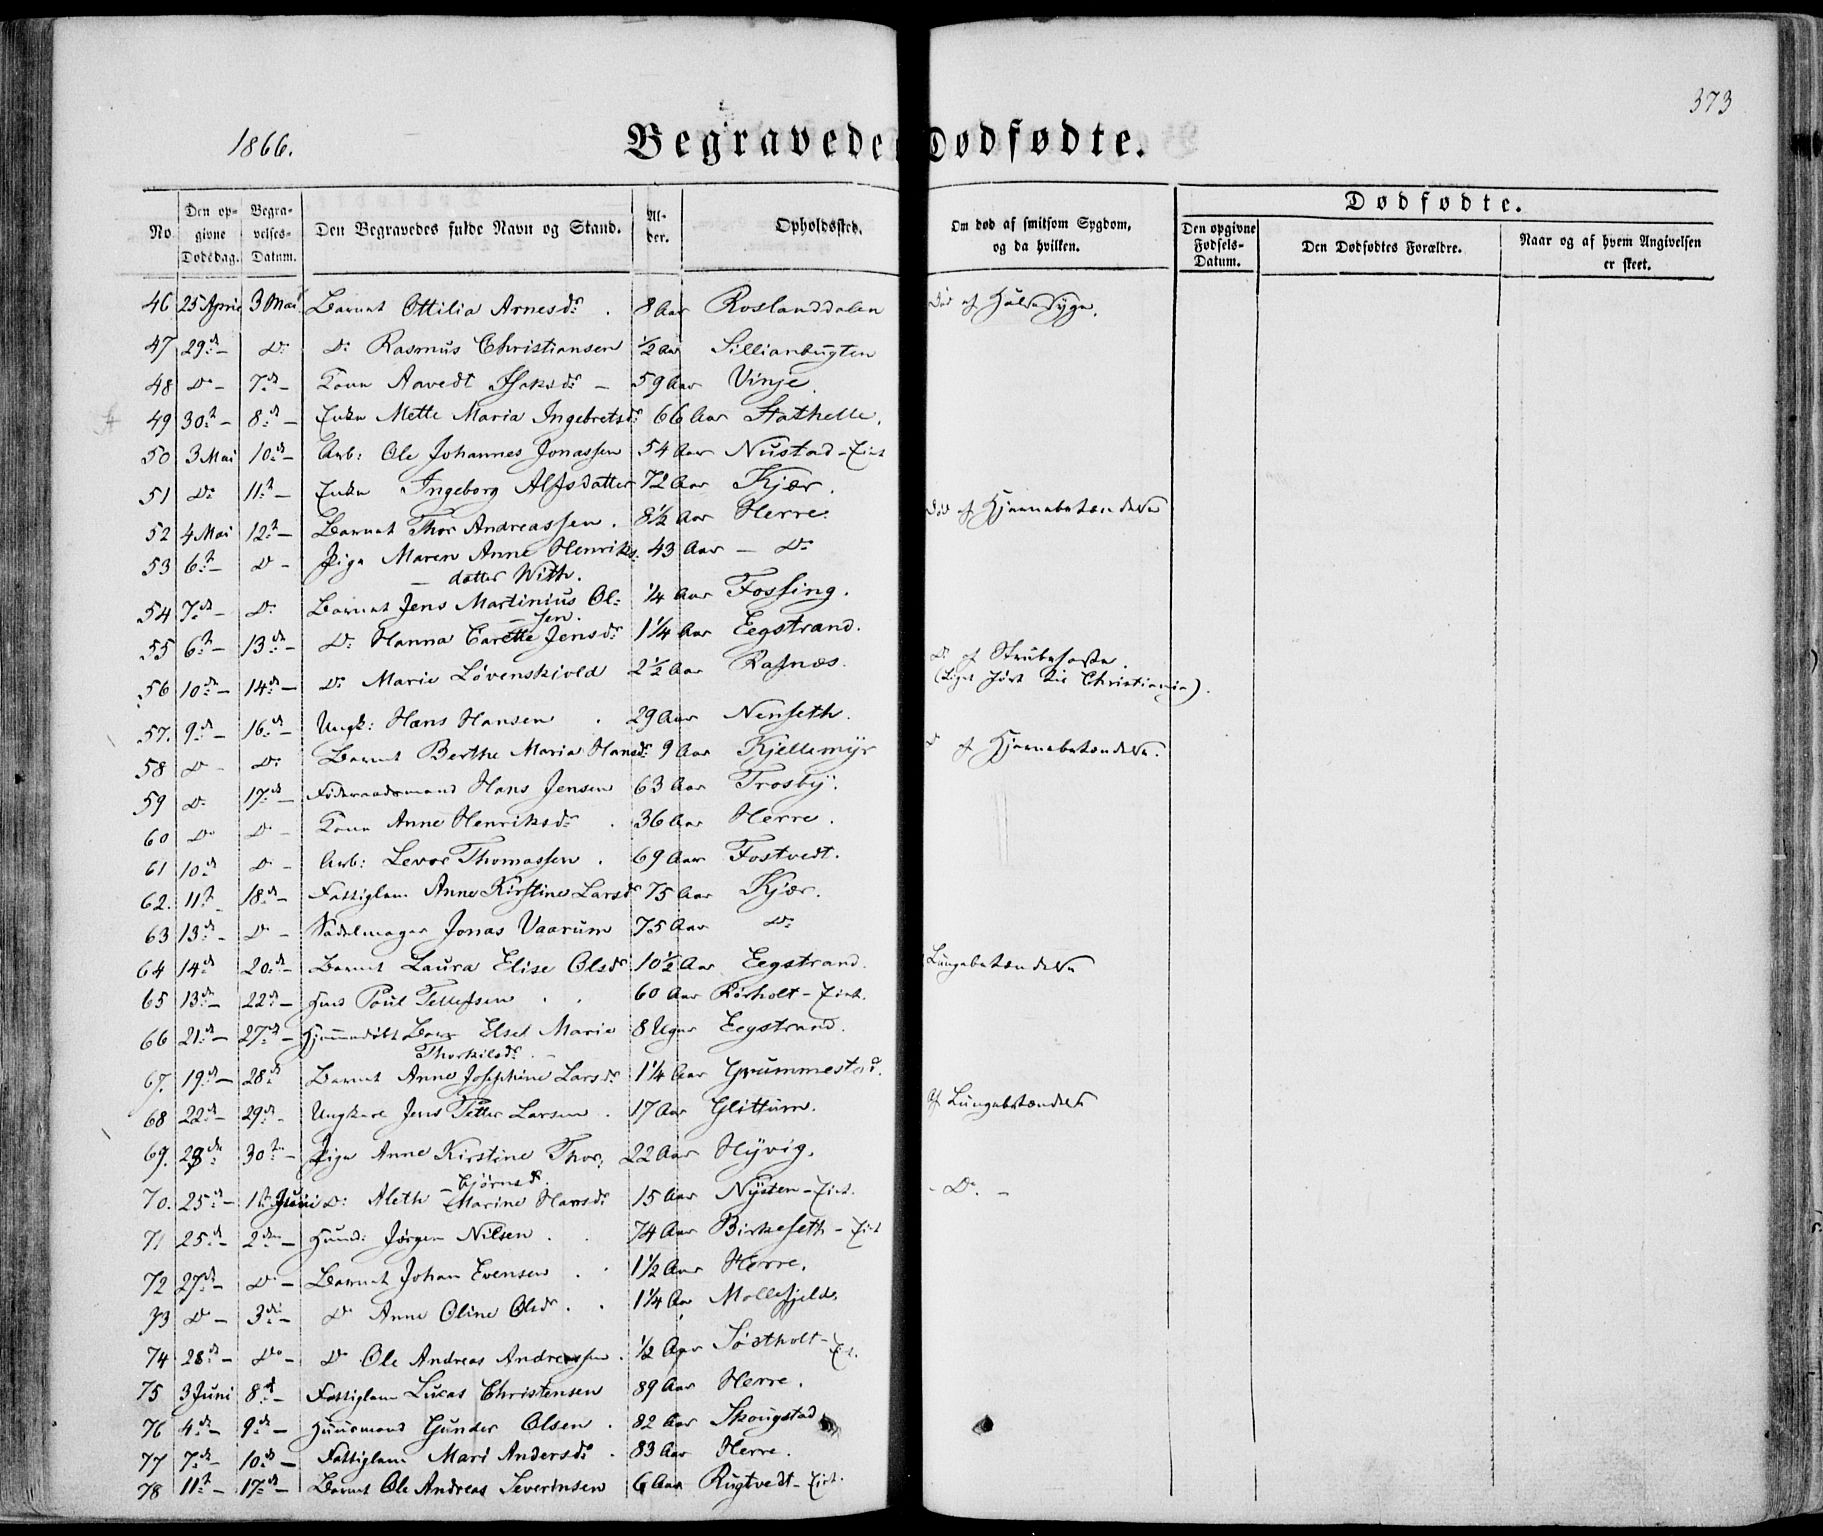 373
1866.
Begravede Dødfødte.
No.
Den op-
givne
Dødsdag.
Begra-
velses-
Datum.
Den Begravedes fulde Navn og Stand.
Al-
der.
Opholdssted.
Om død af smitsom Sygdom,
og da hvilken.
Dødfødte.
Den opgivne
Fødsels-
Datum.
Den Dødfødtes Forældre.
Naar og af hvem Angivelsen
er skeet.
46 25 April 3 Mai Barnet Ottilia Arnesdr. 8 Aar Roslanddalen Død af Halssyge.
47 29de - Do Do Rasmus Christiansen 1/2 Aar Sillianbugten
48 Do - 7de - Kone Aavedt Isaksdr - 59 Aar Vinje.
49 30te - 8de - Enke Mette Maria Ingebretsdr 66 Aar Stathelle.
50 3 Mai 10de - Arb: Ole Johannes Jonassen 54 Aar Nustad - Eiet
51 Do 11te - Enke Ingeborg Alfsdatter 72 Aar Kjær.
52 4 Mai 12te - Barnet Thor Andreassen. 8 1/2 Aar Herre. Død af Hjernebetændelse
53 6te - Do - Pige Maren Anne Henriks- 43 Aar - Do
- datter With.
54 7de - Do Barnet Jens Martinius Ol- 1/4 Aar Fossing.
- sen.
55 6te - 13de - Do Hanna Carette Jensdr 1 1/4 Aar Eegstrand.
56 10de - 14de - Do Marie Løvenskiold 2 1/2 Aar Rafnæs. Do af Strubehoste.
(Liget ført til Christiania).
57. 9de - 16de - Ungk: Hans Hansen. 29 Aar Nenseth.
58 Do - Do Barnet Berthe Maria Hansdr 9 Aar Kjellemyr Do af Hjernebetændelse.
59 Do 17de - Føderaadsmand Hans Jensen 63 Aar Trosby.
60 Do Do - Kone Anne Henriksdr. 36 Aar Herre.
61 10de Do - Arb: Levor Thomassen. 69 Aar Fostvedt.
62. 11te 18de - Fattiglem Anne Kirstine Larsdr 75 Aar Kjær.
63 13de - Do - Nadelmager Jonas Vaarum 75 Aar Do
64 14de 20de - Barnet Laura Elise Olsdr 10 1/2 Aar Eegstrand. Lungebetændelse
65 13de - 22de - Huus Poul Tellefsen. . 60 Aar Rörholt - Eiet.
66 21de - 27de - Hjemmedøbt Barn Elset Marie 8 Uger Eegstrand.
Thorkilsdr. -
67. 19de - 28de Barnet Anne Josephine Larsdr 1 1/4 Aar Grummestad.
68 22de - 29de - Ungkarl Jens Petter Larsen. 17 Aar Glittum. Af Lungebetændelse
69. 23de 30te - Pige Anne Kirstine Thor- 22 Aar Hyvig.
- bjørnsdr.
70. 25de - 1te Juni Do: Aleth Marine Hansdr 15 Aar Nysten - Eiet. - Do. -
71 25de - 2den - Huusm: Jørgen Nilsen. . 74 Aar Birkeseth - Eiet
72 27de - Do - Barnet Johan Evensen. . 1 1/2 Aar Herre.
73 Do - 3de - Do Anne Oline Olsdr. . 1 1/4 Aar Mollefjeld.
74 28de - Do - Do Ole Andreas Andreassen. 1/2 Aar Søstholt - Eiet.
75 3 Juni 8de - Fattiglem Lucas Christensen 89 Aar Herre.
76 4de 9de - Huusmand Gunder Olsen. 82 Aar Skougstad
77 7de - 10de - Fattiglem Mari Andersdr. 83 Aar Herre.
78 11te - 17de - Barnet Ole Andreas Severinsen 6 Aar Rugtvedt - Eiet.